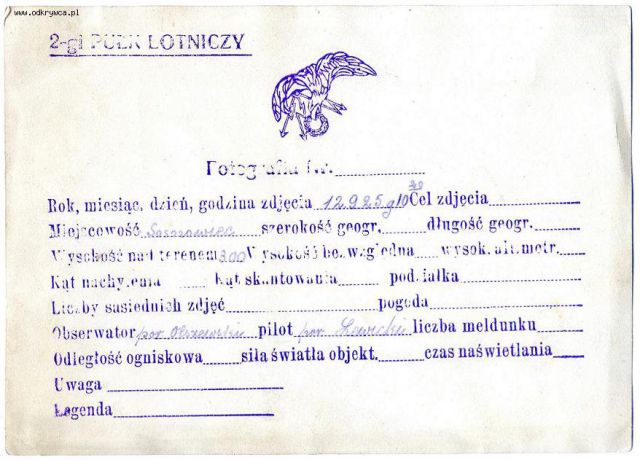 www.odkrywca.pl
2-gi PUŁK LOTNICZY
Fotografia Nr.
Rok, miesiąc, dzień, godzina zdjęcia 12 9 25 g10 30 Cel zdjęcia
Miejscowość szerokość geogr. długość geogr.
Wysokość nad terenem 800 Wysokość bezwzględna wysok. alt.metr.
Kąt nachylenia Kąt skantowania podziałka
Liczby sąsiednich zdjęć pogoda
Obserwator por Olszewski pilot por liczba meldunku
Odległość ogniskowa siła światła objekt. czas naświetlania
Uwaga
Legenda